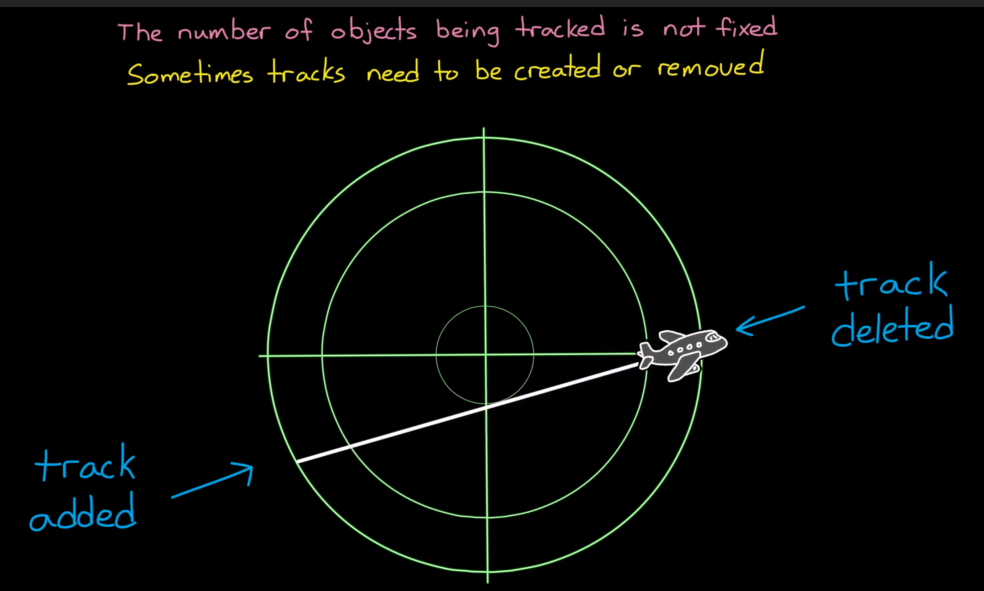 The number of objects being tracked is not fixed
Sometimes tracks need to be created or removed
track
deleted
track
added